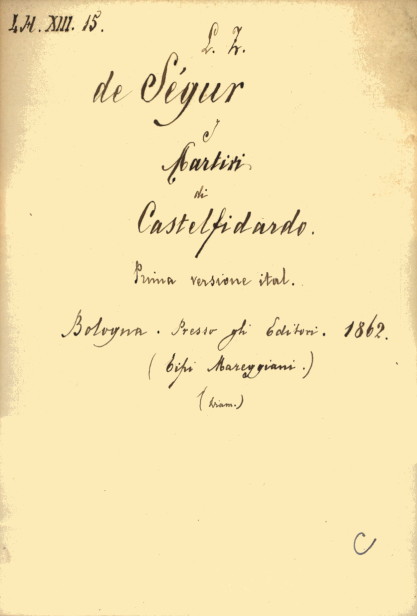 I. H. XIII. 15.
L. Z.
de Ségur
I
Martiri
di
Castelfidardo.
Prima versione ital.
Bologna. Presso gli Editori. 1862.
(Tipi Mareggiani.)
C